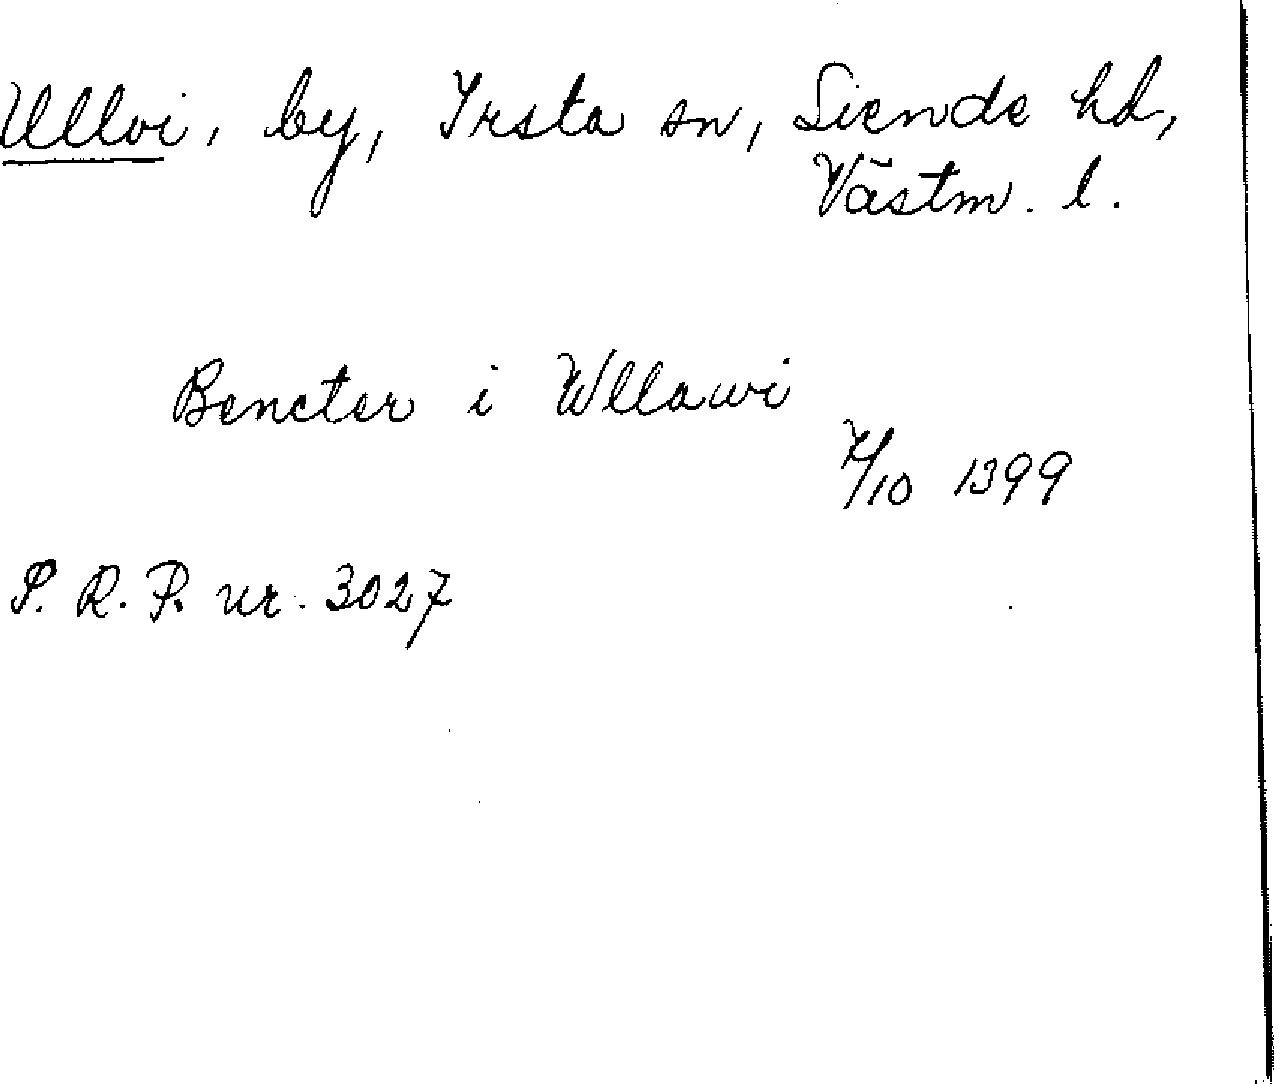 Ullvi, by, Irsta sn, Siende hd,
Västm. l.
Bencter i Wllawi
7/10 1399
S. R. P. nr. 3027